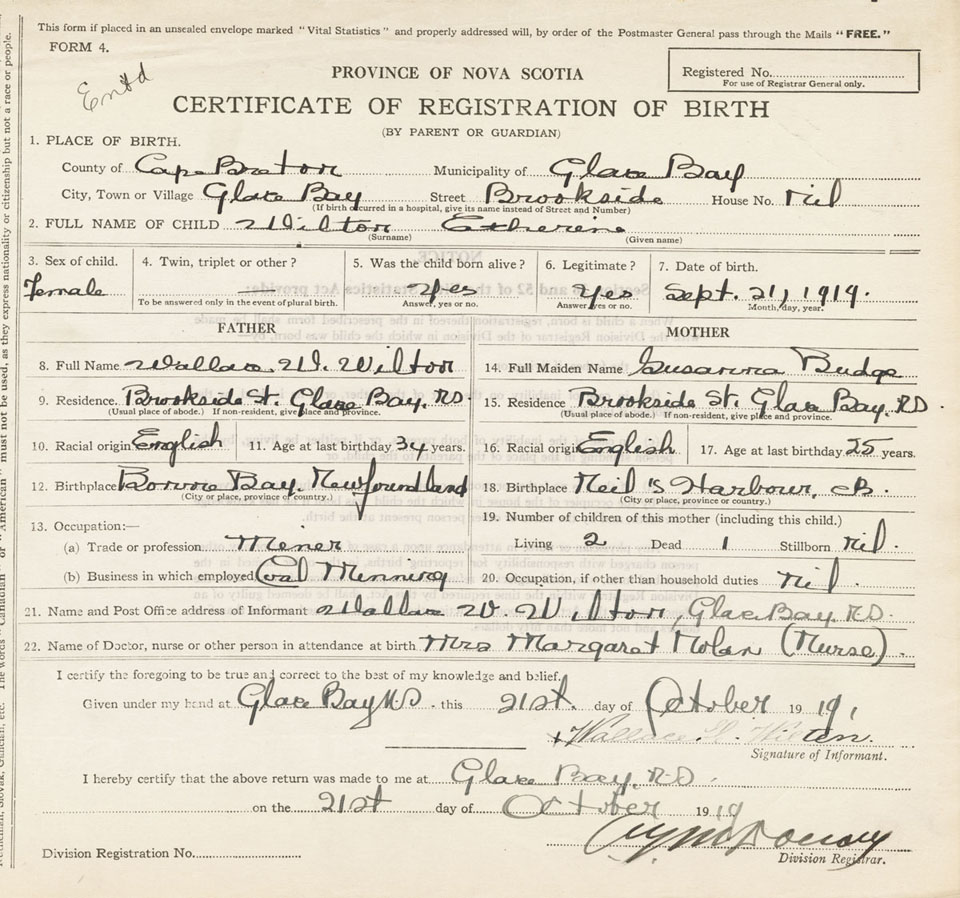 This form if placed in an unsealed envelope marked "Vital Statistics" and properly addressed will, by order of the Postmaster General pass through the Mails "FREE."
FORM 4.
Ent'd
Registered No.
For use of Registrar General only.
PROVINCE OF NOVA SCOTIA
CERTIFICATE OF REGISTRATION OF BIRTH
(BY PARENT OR GUARDIAN)
1. PLACE OF BIRTH.
County of Cape Breton Municipality of Glace Bay
City, Town or Village Glace Bay Street Brookside House No. Nil
(If birth occurred in a hospital, give its name instead of Street and Number)
2. FULL NAME OF CHILD Wilton Catherine
(Surname) (Given name)
3. Sex of child. 4. Twin, triplet or other? 5. Was the child born alive? 6. Legitimate? 7. Date of birth.
Female — Yes Yes Sept. 21, 1919.
To be answered only in the event of plural birth. Answer, yes or no. Answer, yes or no. Month, day, year.
FATHER
8. Full Name Wallace W. Wilton
9. Residence. Brookside St. Glace Bay. N.S.
(Usual place of abode.) If non-resident, give place and province.
10. Racial origin English 11. Age at last birthday 34 years.
12. Birthplace Bay, Newfoundland
(City or place, province or country.)
13. Occupation:—
(a) Trade or profession Miner
(b) Business in which employed Coal Minning
MOTHER
14. Full Maiden Name Susanna Budge
15. Residence Brookside St. Glace Bay. N.S.
(Usual place of abode.) If non-resident, give place and province.
16. Racial origin English 17. Age at last birthday 25 years.
18. Birthplace Neil's Harbour, CB.
(City or place, province or country.)
19. Number of children of this mother (including this child.)
Living 2 Dead 1 Stillborn Nil.
20. Occupation, if other than household duties Nil.
21. Name and Post Office address of Informant Wallace W. Wilton, Glace Bay. N.S.
22. Name of Doctor, nurse or other person in attendance at birth Mrs Margaret Nolan (Nurse).
I certify the foregoing to be true and correct to the best of my knowledge and belief.
Given under my hand at Glace Bay N.S. this 21st. day of October 1919.
Wallace Wilton.
Signature of Informant.
I hereby certify that the above return was made to me at Glace Bay, N.S.
on the 21st day of October 1919
Division Registrar.
Division Registration No.